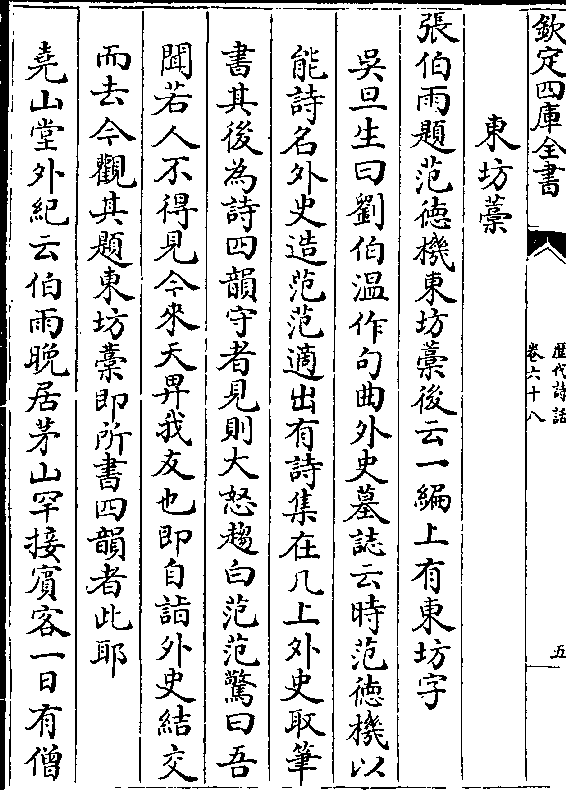 欽定四庫全書
歷代詩話
卷六十八
五
東坊藁
張伯雨題范德機東坊藁後云一編上有東坊字
吳旦生曰劉伯溫作句曲外史墓誌云時范德機以
能詩名外史造范范適出有詩集在几上外史取筆
書其後為詩四韻守者見則大怒趨白范范驚曰吾
聞若人不得見今來天畀我友也即自詣外史結交
而去今觀其題東坊藁即所書四韻者此耶
堯山堂外紀云伯雨晚居茅山罕接賓客一日有僧